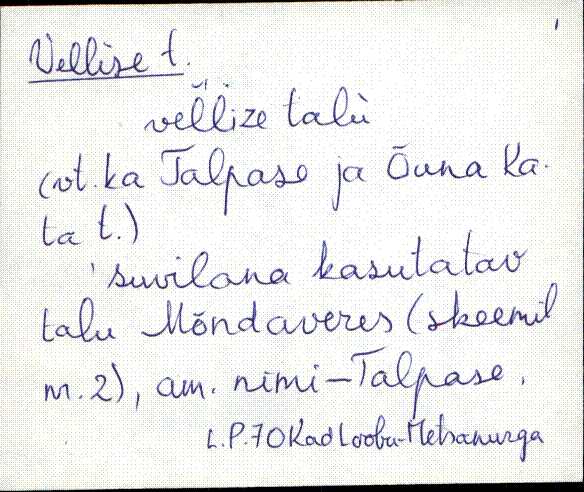 Vellise t.
vellize talù
(vt. ka Talpase ja Õuna Ka-
ta t.)
'suvilana kasutatav
talu Mõndaveres (skeemil
nr. 2), am. nimi – Talpase.
L.P. 70 Kad Loobu-Metsanurga